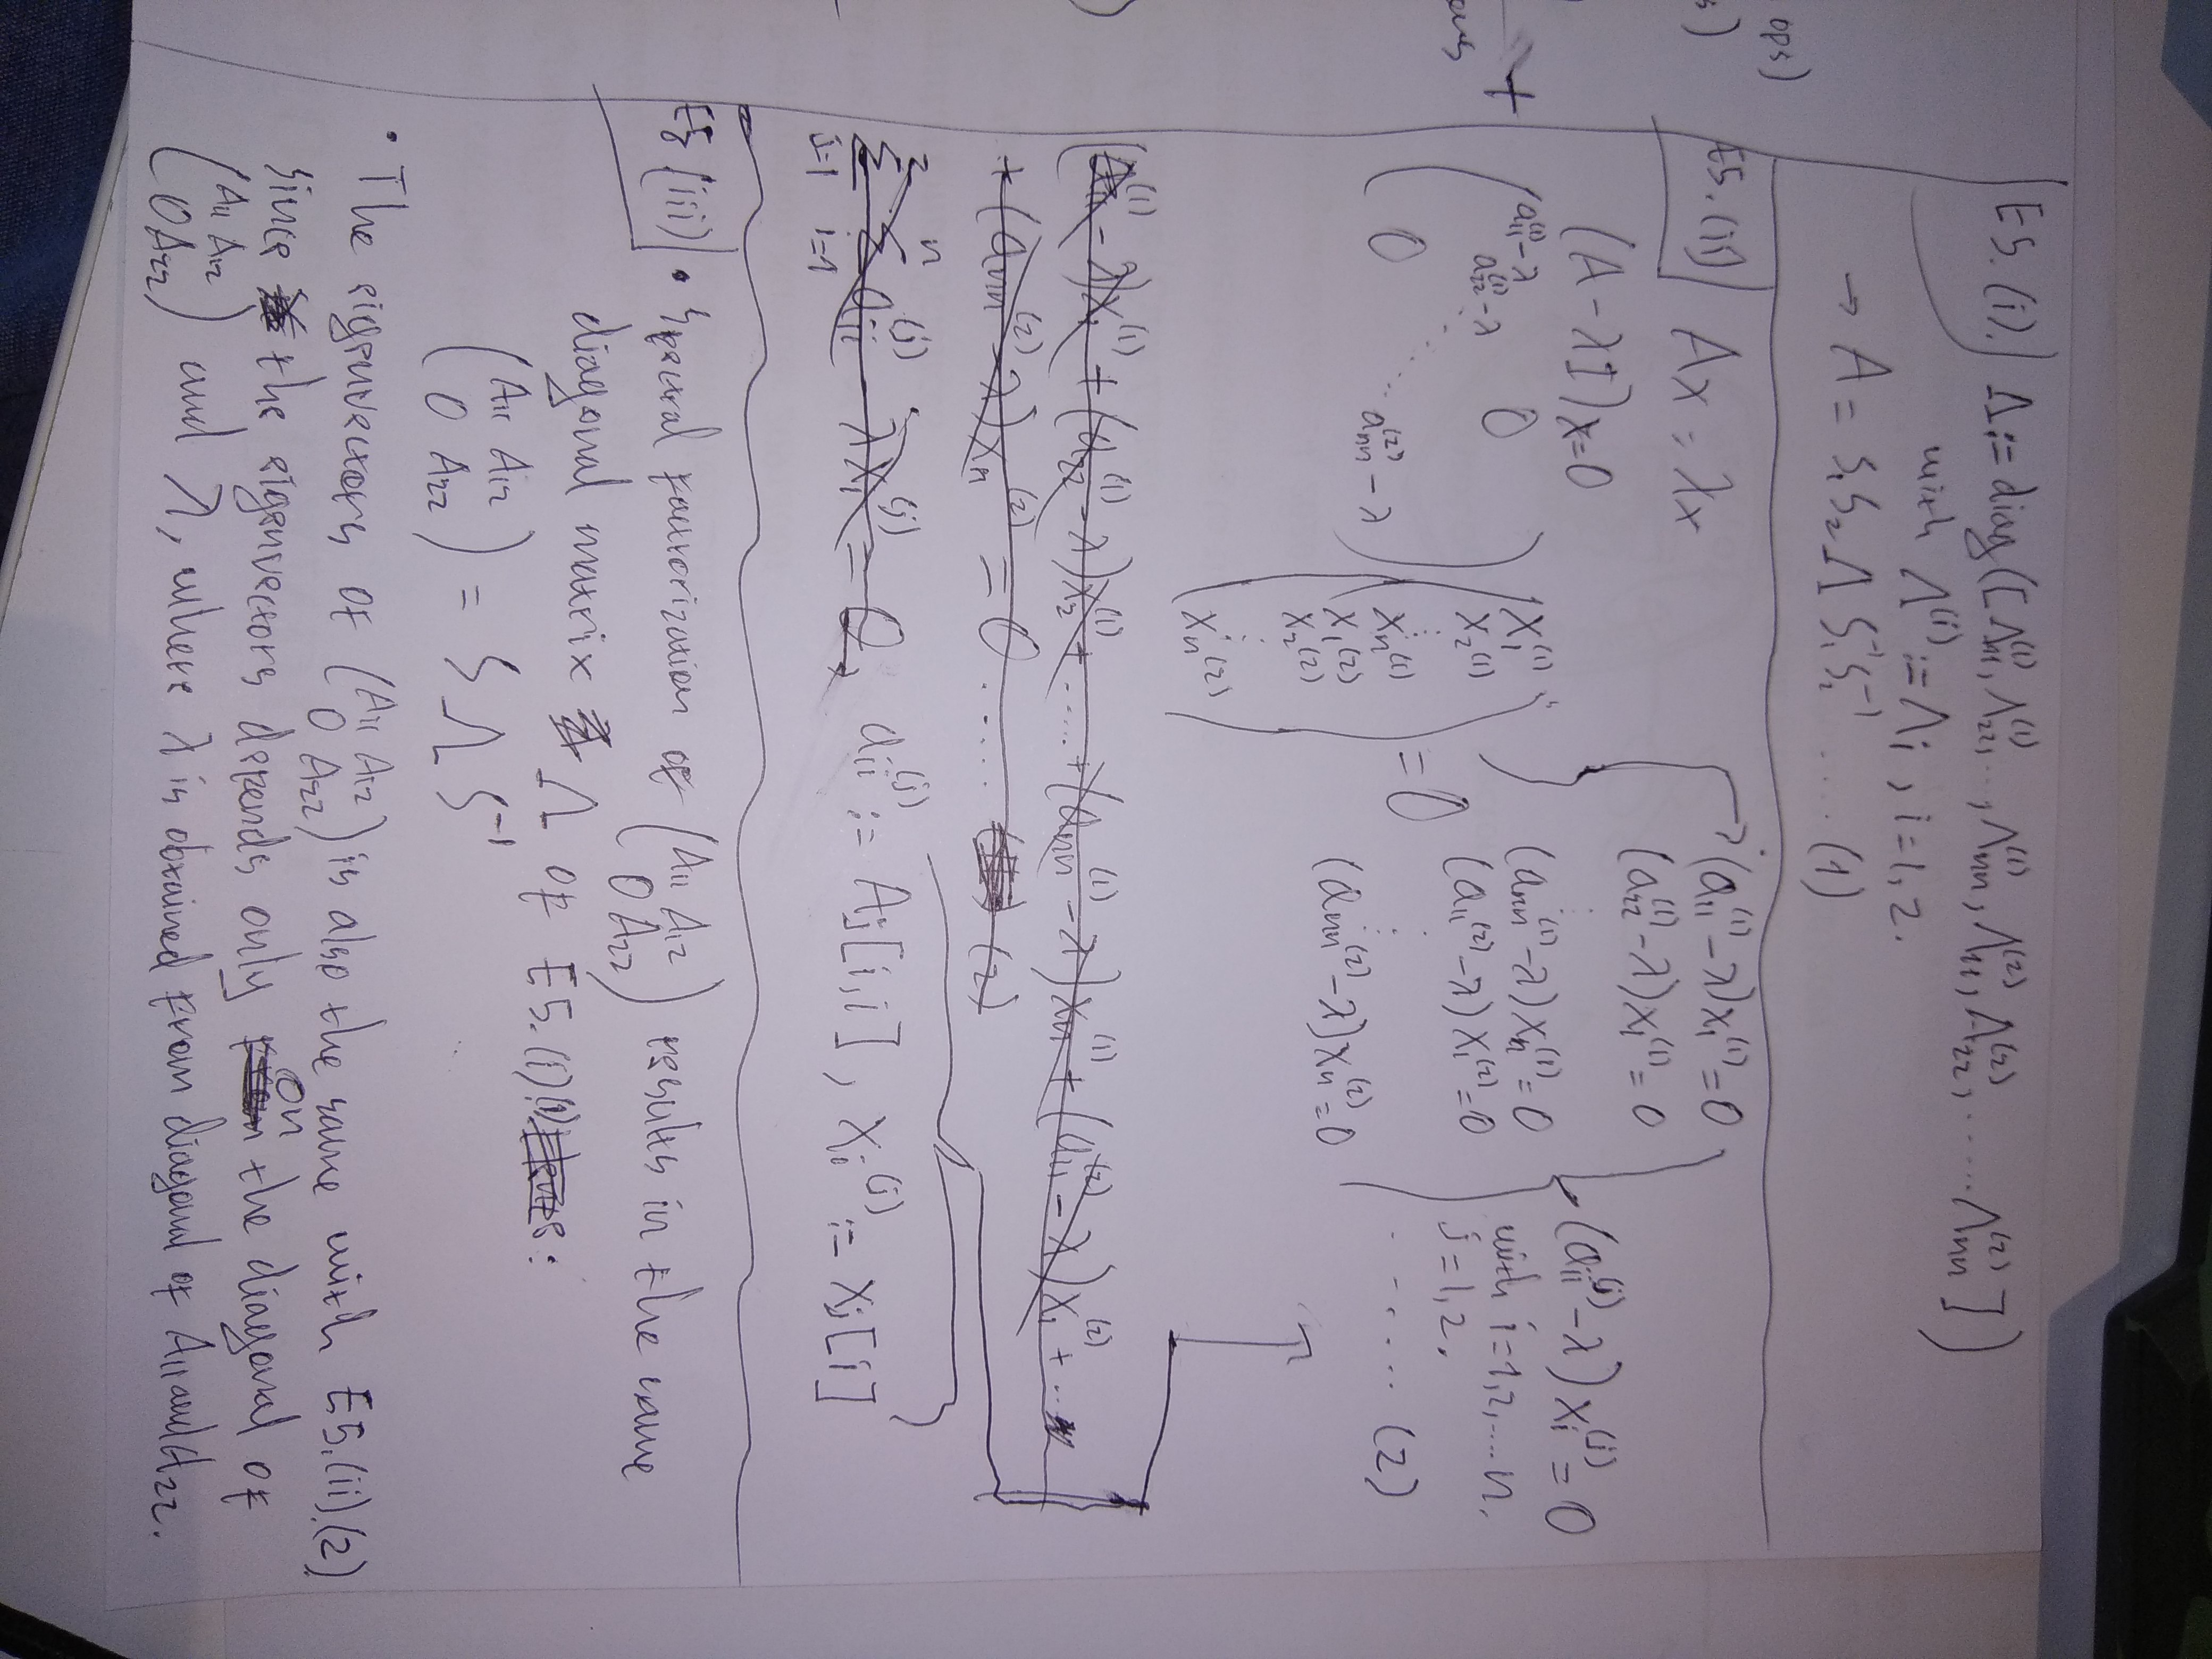 ops)
s)
E5. (i). Λ := diag([Λ₁₁⁽¹⁾, Λ₂₂⁽¹⁾, ..., Λₙₙ⁽¹⁾, Λ₁₁⁽²⁾, Λ₂₂⁽²⁾, ..... Λₙₙ⁽²⁾])
with Λ⁽ⁱ⁾ := Λᵢ, i=1,2.
→ A = S₁S₂ Λ S₁⁻¹S₂⁻¹ .... (1)
E5. (ii) Ax = λx
(A-λI)x=0
( a₁₁⁽¹⁾-λ 0
a₂₂⁽¹⁾-λ
0 aₙₙ⁽²⁾-λ )
( x₁⁽¹⁾
x₂⁽¹⁾
⋮
xₙ⁽¹⁾
x₁⁽²⁾
x₂⁽²⁾
⋮
xₙ⁽²⁾ ) = 0
→ (a₁₁⁽¹⁾-λ)x₁⁽¹⁾=0
(a₂₂⁽¹⁾-λ)x₁⁽¹⁾=0
⋮
(aₙₙ⁽¹⁾-λ)xₙ⁽¹⁾=0
(a₁₁⁽²⁾-λ)x₁⁽²⁾=0
⋮
(aₙₙ⁽²⁾-λ)xₙ⁽²⁾=0
(aᵢᵢ⁽ʲ⁾-λ)xᵢ⁽ʲ⁾=0
with i=1,2,....n.
j=1,2.
....... (2)
(a₁₁⁽¹⁾-λ)x₁⁽¹⁾ + (a₂₂⁽¹⁾-λ)x₂⁽¹⁾ + ..... + (aₙₙ⁽¹⁾-λ)xₙ⁽¹⁾ + (a₁₁⁽²⁾-λ)x₁⁽²⁾ + ...
+ (aₙₙ⁽²⁾-λ)xₙ⁽²⁾ = 0 ..... (2)
Σⱼ₌₁² Σᵢ₌₁ⁿ aᵢᵢ⁽ʲ⁾ - λxᵢ⁽ʲ⁾ = 0, aᵢᵢ⁽ʲ⁾ := Aⱼ[i,i], xᵢ⁽ʲ⁾ := xⱼ[i]
E5 (iii) • Spectral factorization of (A₁₁ A₁₂ 0 A₂₂) results in the same
diagonal matrix Λ of E5.(i).(1):
(A₁₁ A₁₂ 0 A₂₂) = S Λ S⁻¹
• The eigenvectors of (A₁₁ A₁₂ 0 A₂₂) is also the same with E5.(ii).(2)
since the eigenvectors depends only on the diagonal of
(A₁₁ A₁₂ 0 A₂₂) and λ, where λ is obtained from diagonal of A₁₁ and A₂₂.